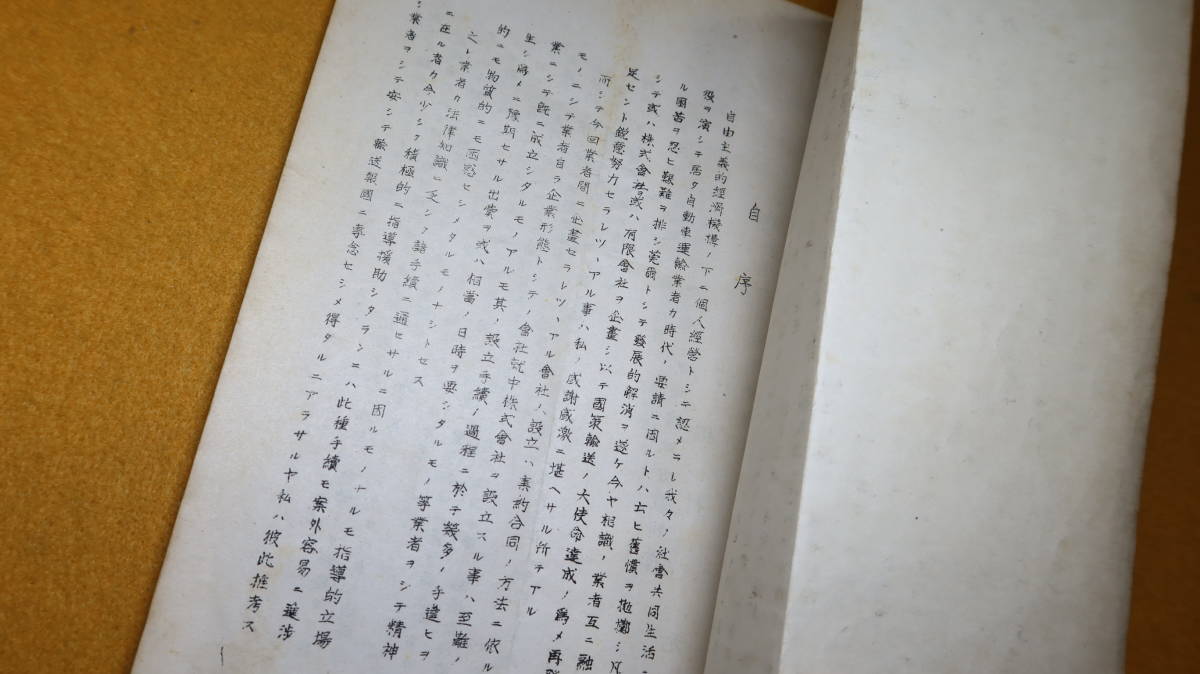 自序
自由主義的經濟機構ノ下ニ個人經營トシテ認メラレ我々ノ社會共同生活ニ
役ヲ演シテ居タ自動車運輸業者カ時代ノ要請ニ因ルトハ云ヒ舊慣ヲ抛擲シ凡
ル困苦ヲ忍ヒ艱難ヲ排シ莞爾トシテ發展的解消ヲ遂ケ今ヤ相識ノ業者互ニ融
シテ或ハ株式會社或ハ有限會社ヲ企畫シ以テ國策輸送ノ大使命達成ノ爲メ再
足セント鋭意努力セラレツヽアル事ハ私ノ感謝感激ニ堪ヘサル所テアル
而シテ今回業者間ニ企畫セラレツヽアル會社ノ設立ハ契約合同ノ方法ニ依ル
モノニシテ業者自ラ企業形態トシテノ會社就中株式會社ヲ設立スル事ハ至難ノ
業ニシテ既ニ成立シタルモノアルモ其ノ設立手續ノ過程ニ於テ幾多ノ手違ヒヲ
生シ爲メニ豫期セサル出費ヲ或ハ相當ノ日時ヲ要シタルモノ等業者ヲシテ精神
的ニモ物質的ニモ困惑セシメタルモノナシトセス
之レ業者カ法律知識ニ乏シク諸手續ニ通セサルニ因ルモノナルモ指導的立場
ニ在ル者カ今少シク積極的ニ指導援助シタランニハ此種手續モ案外容易ニ進涉
シ業者ヲシテ安シテ輸送報國ニ專念セシメ得タルニアラサルヤ私ハ彼此推考ス